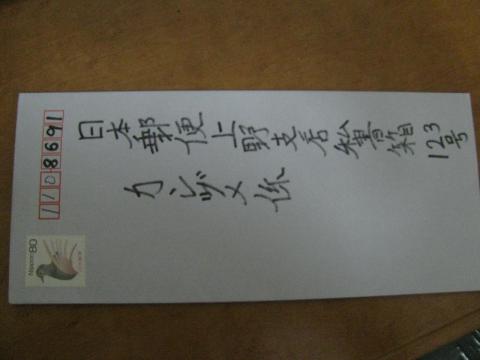 1108691
日本郵便上野支店私書箱123号
カンヅメ係
NIPPON 80